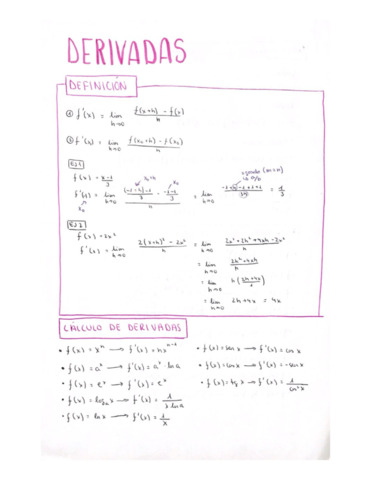 DERIVADAS
DEFINICIÓN
① f'(x) = lim h→0 (f(x+h) - f(x))/h
② f'(x₀) = lim h→0 (f(x₀+h) - f(x₀))/h
Ej 1
f(x) = (x-1)/3
= lim h→0 = 1/3
Ej 2
f(x) = 2x²
f'(x) = lim h→0 (2(x+h)² - 2x²)/h = lim h→0 (2x² + 2h² + 4xh - 2x²)/h
= lim h→0 (2h² + 4xh)/h
= lim h→0 h(2h+4x)/h
= lim h→0 2h + 4x = 4x
CÁLCULO DE DERIVADAS
• f(x) = xⁿ → f'(x) = nxⁿ⁻¹
• f(x) = aˣ → f'(x) = aˣ · ln a
• f(x) = eˣ → f'(x) = eˣ
• f(x) = logₐ x → f'(x) = 1/(x ln a)
• f(x) = ln x → f'(x) = 1/x
• f(x) = sen x → f'(x) = cos x
• f(x) = cos x → f'(x) = -sen x
• f(x) = tg x → f'(x) = 1/cos² x